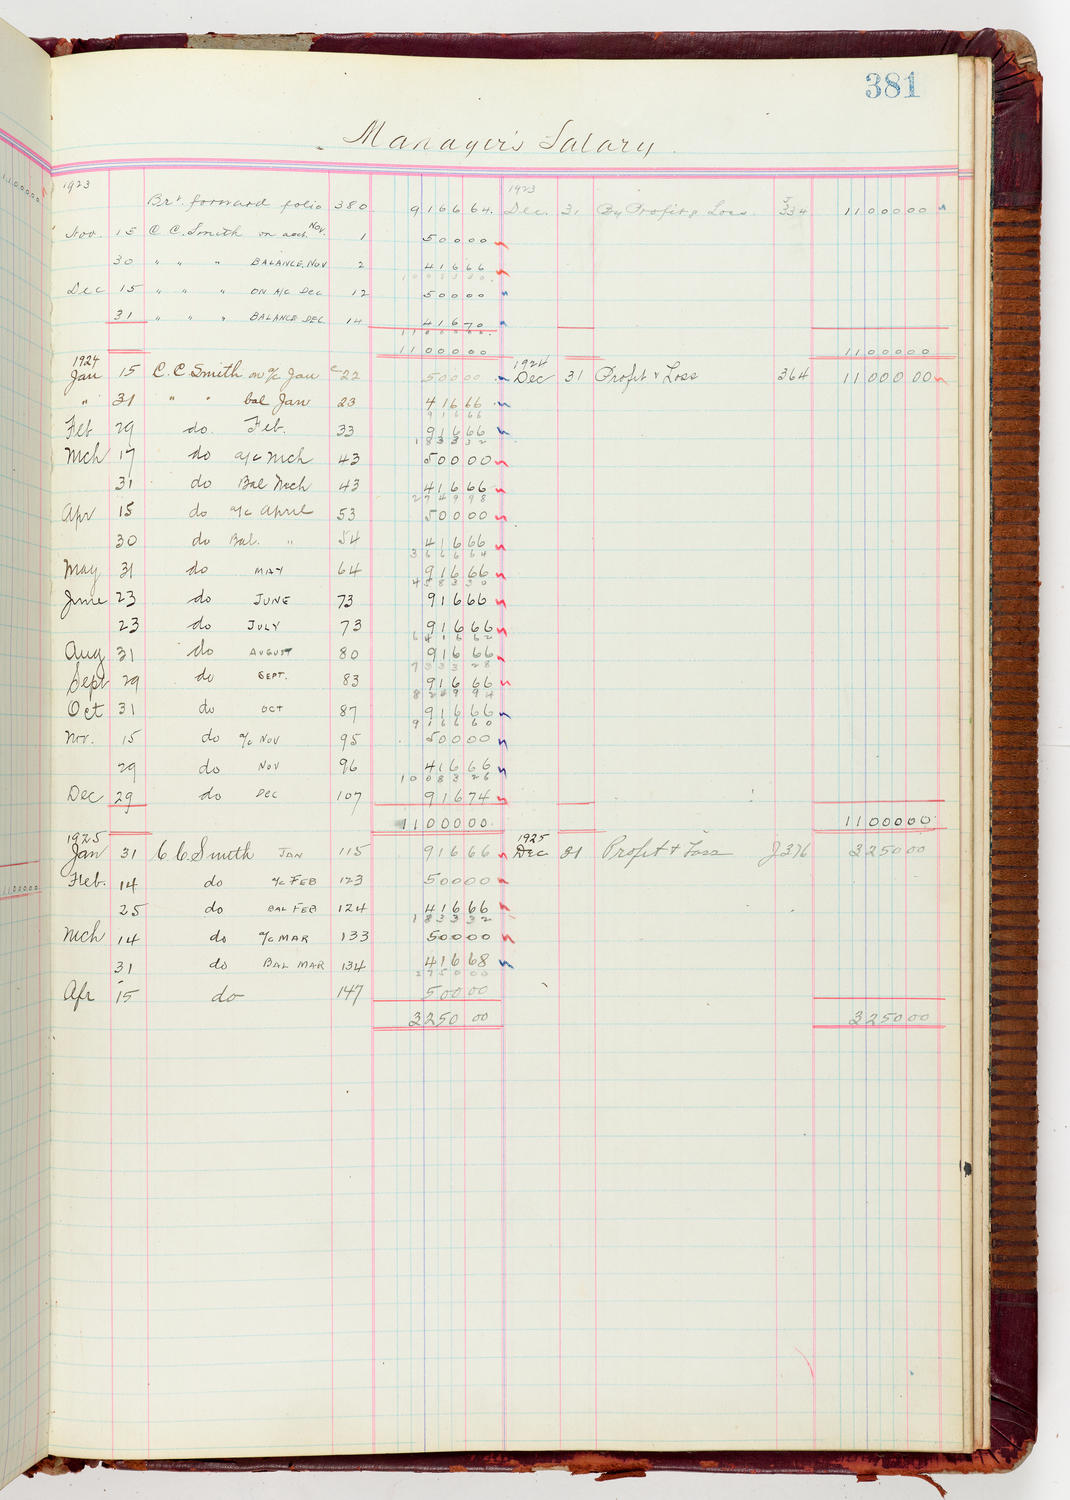 381
Manager's Salary
1923 1923
Brt. forward folio 380 9166 64 Dec. 31 By Profit & Loss J 334 11000 00
Nov. 15 C C. Smith on acct. Nov. 1 500 00
30 " " " BALANCE. NOV 2 416 66
10083 30
Dec 15 " " " ON A/C DEC 12 500 00
31 " " " BALANCE DEC 14 416 70
11000 00
11000 00 11000 00
1924 1924
Jan 15 C. C Smith on a/c Jan C 22 500 00 Dec 31 Profit & Loss 364 11000 00
" 31 " " bal Jan 23 416 66
916 66
Feb 29 do. Feb. 33 916 66
1833 32
Mch 17 do a/c Mch 43 500 00
31 do Bal Mch 43 416 66
2749 98
Apr 15 do a/c April 53 500 00
30 do Bal. " 54 416 66
3666 64
May 31 do MAY 64 916 66
4583 30
June 23 do JUNE 73 916 66
23 do JULY 73 916 66
6416 62
Aug 31 do AUGUST 80 916 66
7333 28
Sept 29 do SEPT. 83 916 66
8249 94
Oct 31 do OCT 87 916 66
9166 60
Nov. 15 do a/c NOV 95 500 00
29 do NOV 96 416 66
10083 26
Dec 29 do DEC 107 916 74
11000 00 11000 00
1925 1925
Jan 31 C C. Smith JAN 115 916 66 Dec 31 Profit & Loss J 376 3250 00
Feb. 14 do a/c FEB 123 500 00
25 do BAL FEB 124 416 66
1833 32
Mch 14 do a/c MAR 133 500 00
31 do BAL MAR 134 416 68
2750 00
Apr 15 do 147 500 00
3250 00 3250 00
11000 00
11000 00